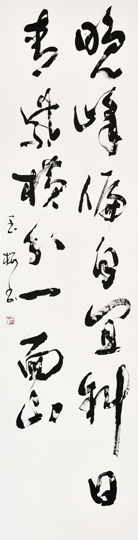 晚峰偏自宜斜日
青紫横分一面山
玉梅书